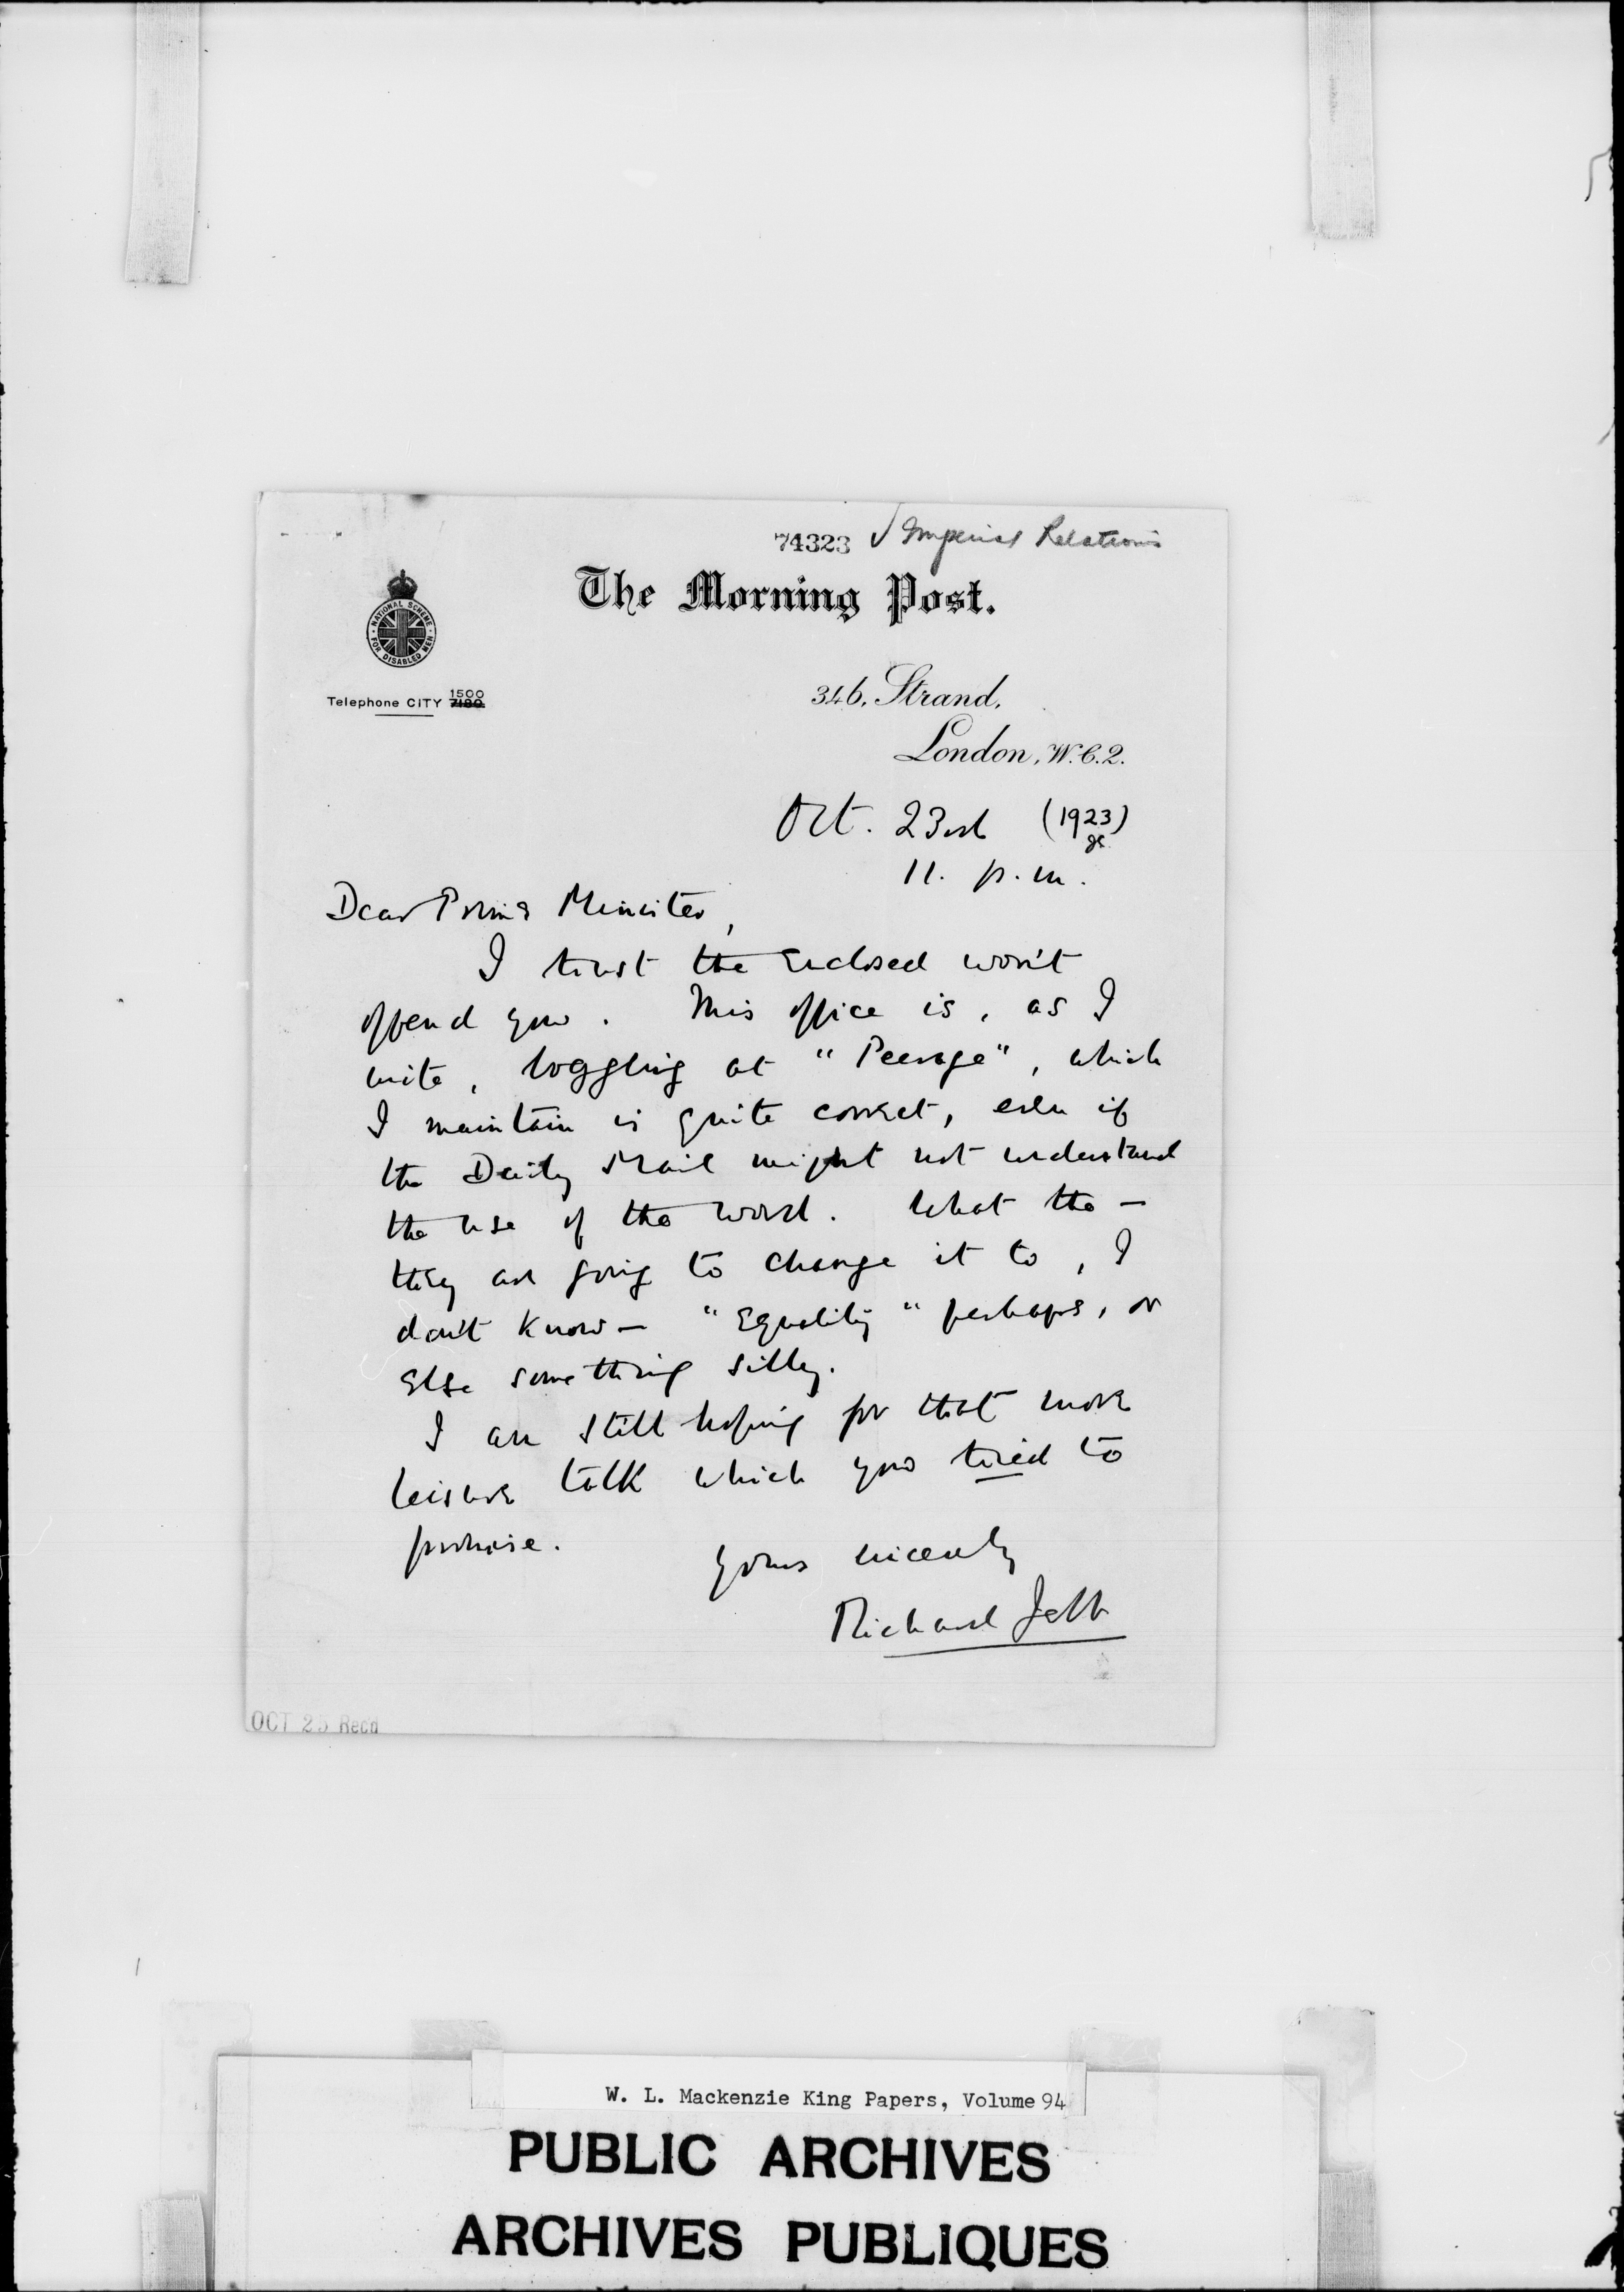 74323 √ Imperial Relations
The Morning Post.
NATIONAL SCHEME FOR DISABLED MEN
Telephone CITY 1500 7180
346, Strand,
London, W.C.2.
Oct. 23rd (1923)
11. p.m.
Dear Prime Minister,
I trust the enclosed won't
offend you. This office is, as I
write, boggling at "Peerage", which
I maintain is quite correct, even if
the Daily Mail might not understand
the use of the word. What the —
they are going to change it to, I
don't know — "Equality" perhaps, or
else something silly.
I am still hoping for that more
leisure talk which you tried to
promise.
Yours sincerely
Richard Jebb
OCT 25 Recd
W. L. Mackenzie King Papers, Volume 94
PUBLIC ARCHIVES
ARCHIVES PUBLIQUES